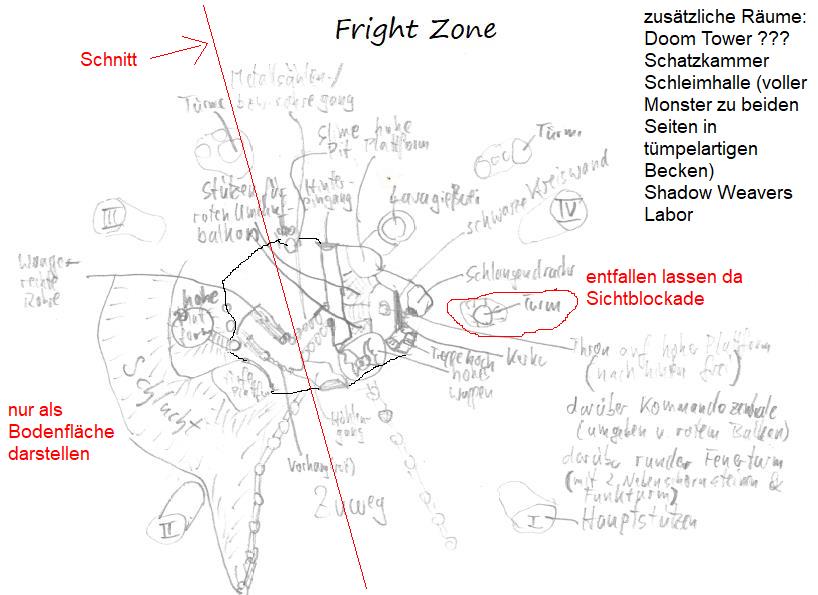 Fright Zone
zusätzliche Räume:
Doom Tower ???
Schatzkammer
Schleimhalle (voller
Monster zu beiden
Seiten in
tümpelartigen
Becken)
Shadow Weavers
Labor
Schnitt
Türme
slime
Pit
hohe
Plattform
Türme
Stützen für
roten
balkon
Hinter-
eingang
Lavagießerei
schwarze Kreiswand
III
IV
Waage-
rechte
Rohre
hohe
entfallen lassen da
Sichtblockade
Turm
Schlucht
Thron auf hoher Plattform
(nach hinten frei)
nur als
Bodenfläche
darstellen
Höhlen-
gang
Vorhang
darüber Kommandozentrale
(umgeben v. rotem Balkon)
darüber runder Feuerturm
(mit 2 Nebenschornsteinen &
Funkturm)
Zuweg
II
I
Hauptstützen